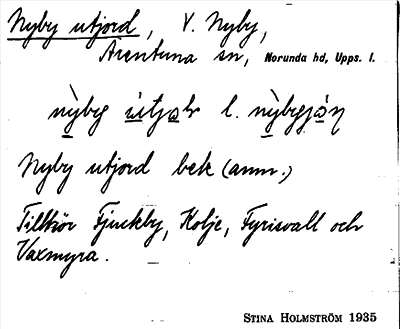 Nyby utjord, V. Nyby,
Ärentuna sn, Norunda hd, Upps. l.
nỳbyg ùtjoḷr l. nỳbygjòṇ
Nyby utjord bek (anm.)
Tillhör Fjuckby, Kolje, Fyrisvall och
Vaxmyra.
STINA HOLMSTRÖM 1935